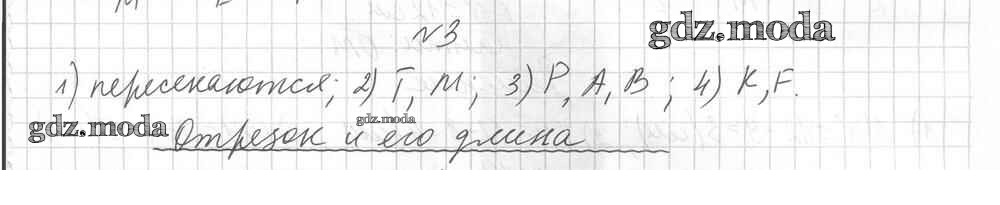 №3 gdz.moda
1) пересекаются; 2) T, M; 3) P, A, B; 4) K, F.
gdz.moda gdz.moda
Отрезок и его длина